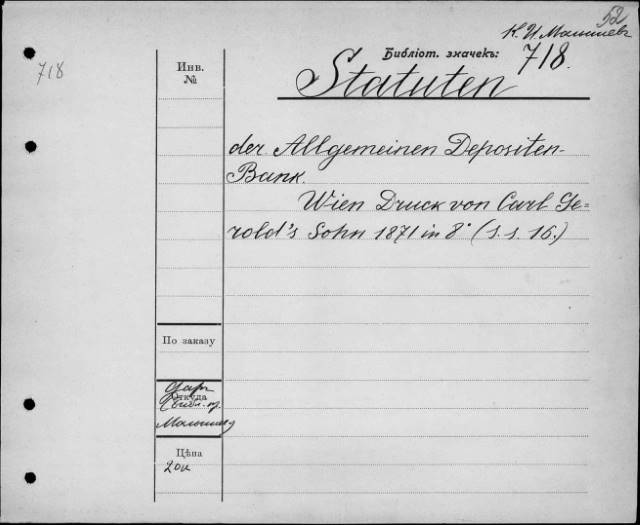 52
К. И. Малышевъ
Библіот. значекъ:
718.
718
Инв.
№
Statuten
der Allgemeinen Depositen-
Bank.
Wien Druck von Carl Ge=
rold's Sohn 1871 in 8° (s. s. 16.)
По заказу
Даръ
Откуда
Малышева
Цѣна
20к